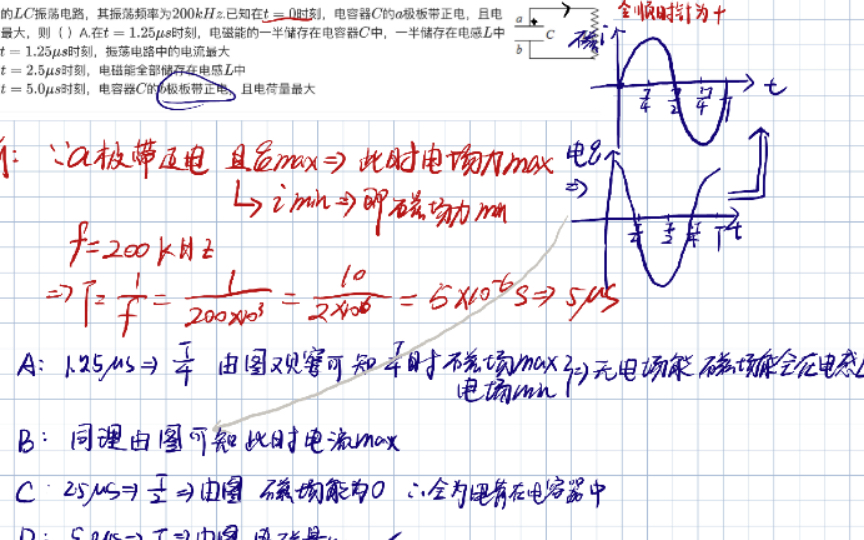 的LC振荡电路，其振荡频率为200kHz.已知在t = 0时刻，电容器C的a极板带正电，且电
最大，则（ ）A.在t = 1.25μs时刻，电磁能的一半储存在电容器C中，一半储存在电感L中
t = 1.25μs时刻，振荡电路中的电流最大
t = 2.5μs时刻，电磁能全部储存在电感L中
t = 5.0μs时刻，电容器C的b极板带正电，且电荷量最大
a
b
C
全 顺时针为+
磁 i
t
T/4 T/2 T
∵a极带正电 且Q max ⇒ 此时电场力max
↳ i min ⇒ 即磁场力min
电
⇒
T/2 T t
f = 200 kHz
⇒ T = 1/f = 1/200×10³ = 10/2×10⁶ = 5×10⁻⁶ s ⇒ 5μs
A: 1.25μs ⇒ T/4 由图观察可知 T/4时 磁场max ⇒ 无电场能 磁场能全在电感L
电场min
B: 同理由图可知此时电流max
C 2.5μs ⇒ T/2 ⇒ 由图 磁场能为0 ∴全为电 在电容器中